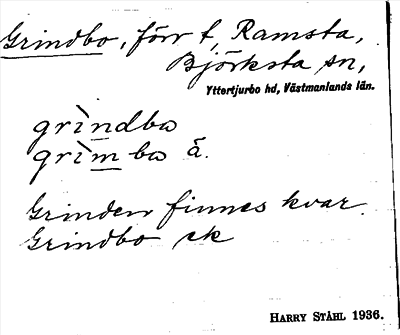 Grindbo, förr t, Ramsta,
Björksta sn,
Yttertjurbo hd, Västmanlands län.
grìndba
grìmba ä.
Grinden finnes kvar.
Grindbo ek
HARRY STÅHL 1936.